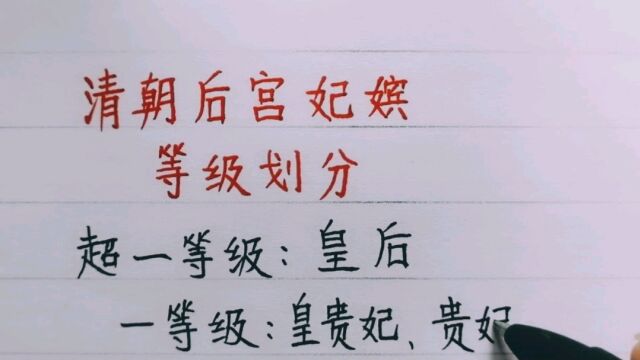 清朝后宫妃嫔
等级划分
超一等级:皇后
一等级:皇贵妃、贵妃